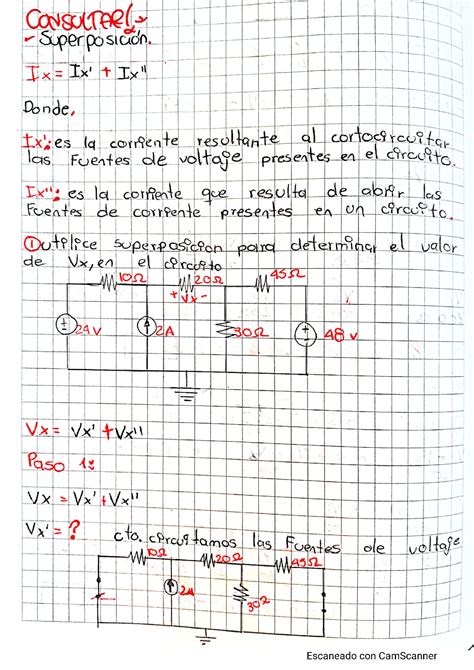 CONSULTAR!
- Superposición.
Ix = Ix' + Ix''
Donde,
Ix': es la corriente resultante al cortocircuitar
las fuentes de voltaje presentes en el circuito.
Ix'': es la corriente que resulta de abrir las
fuentes de corriente presentes en un circuito.
① utilice superposicion para determinar el valor
de Vx, en el circuito
10Ω 20Ω 45Ω
+ Vx -
24 V 2A 30Ω 48 V
Vx = Vx' + Vx''
Paso 1:
Vx = Vx' + Vx''
Vx' = ? cto. circuitamos las fuentes de voltaje
10Ω 20Ω 45Ω
2A 30Ω
Escaneado con CamScanner